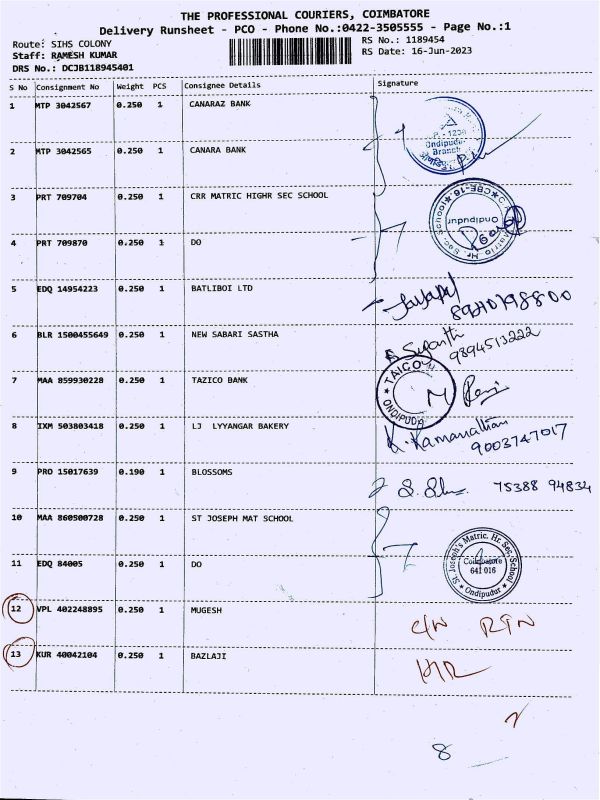 THE PROFESSIONAL COURIERS, COIMBATORE
Delivery Runsheet - PCO - Phone No.:0422-3505555 - Page No.:1
Route: SIHS COLONY
RS No.: 1189454
Staff: RAMESH KUMAR
RS Date: 16-Jun-2023
DRS No.: DCJB118945401
S No Consignment No Weight PCS Consignee Details Signature
1 MTP 3042567 0.250 1 CANARAZ BANK
Ondipudur
Branch
2 MTP 3042565 0.250 1 CANARA BANK
3 PRT 709704 0.250 1 CRR MATRIC HIGHR SEC SCHOOL
Ondipudur
4 PRT 709870 0.250 1 DO
5 EDQ 14954223 0.250 1 BATLIBOI LTD
6 BLR 1500455649 0.250 1 NEW SABARI SASTHA
9894513222
7 MAA 859930228 0.250 1 TAZICO BANK
TAICO
ONDIPUDUR
8 IXM 503803418 0.250 1 LJ LYYANGAR BAKERY
K. Ramanathan
9003747017
9 PRO 15017639 0.190 1 BLOSSOMS
75388 94834
10 MAA 860500728 0.250 1 ST JOSEPH MAT SCHOOL
11 EDQ 84005 0.250 1 DO
St. Joseph's Matric. Hr. Sec. School
Coimbatore
641 016
Ondipudur
12 VPL 402248895 0.250 1 MUGESH
C/N RTN
13 KUR 40042104 0.250 1 BAZLAJI
8